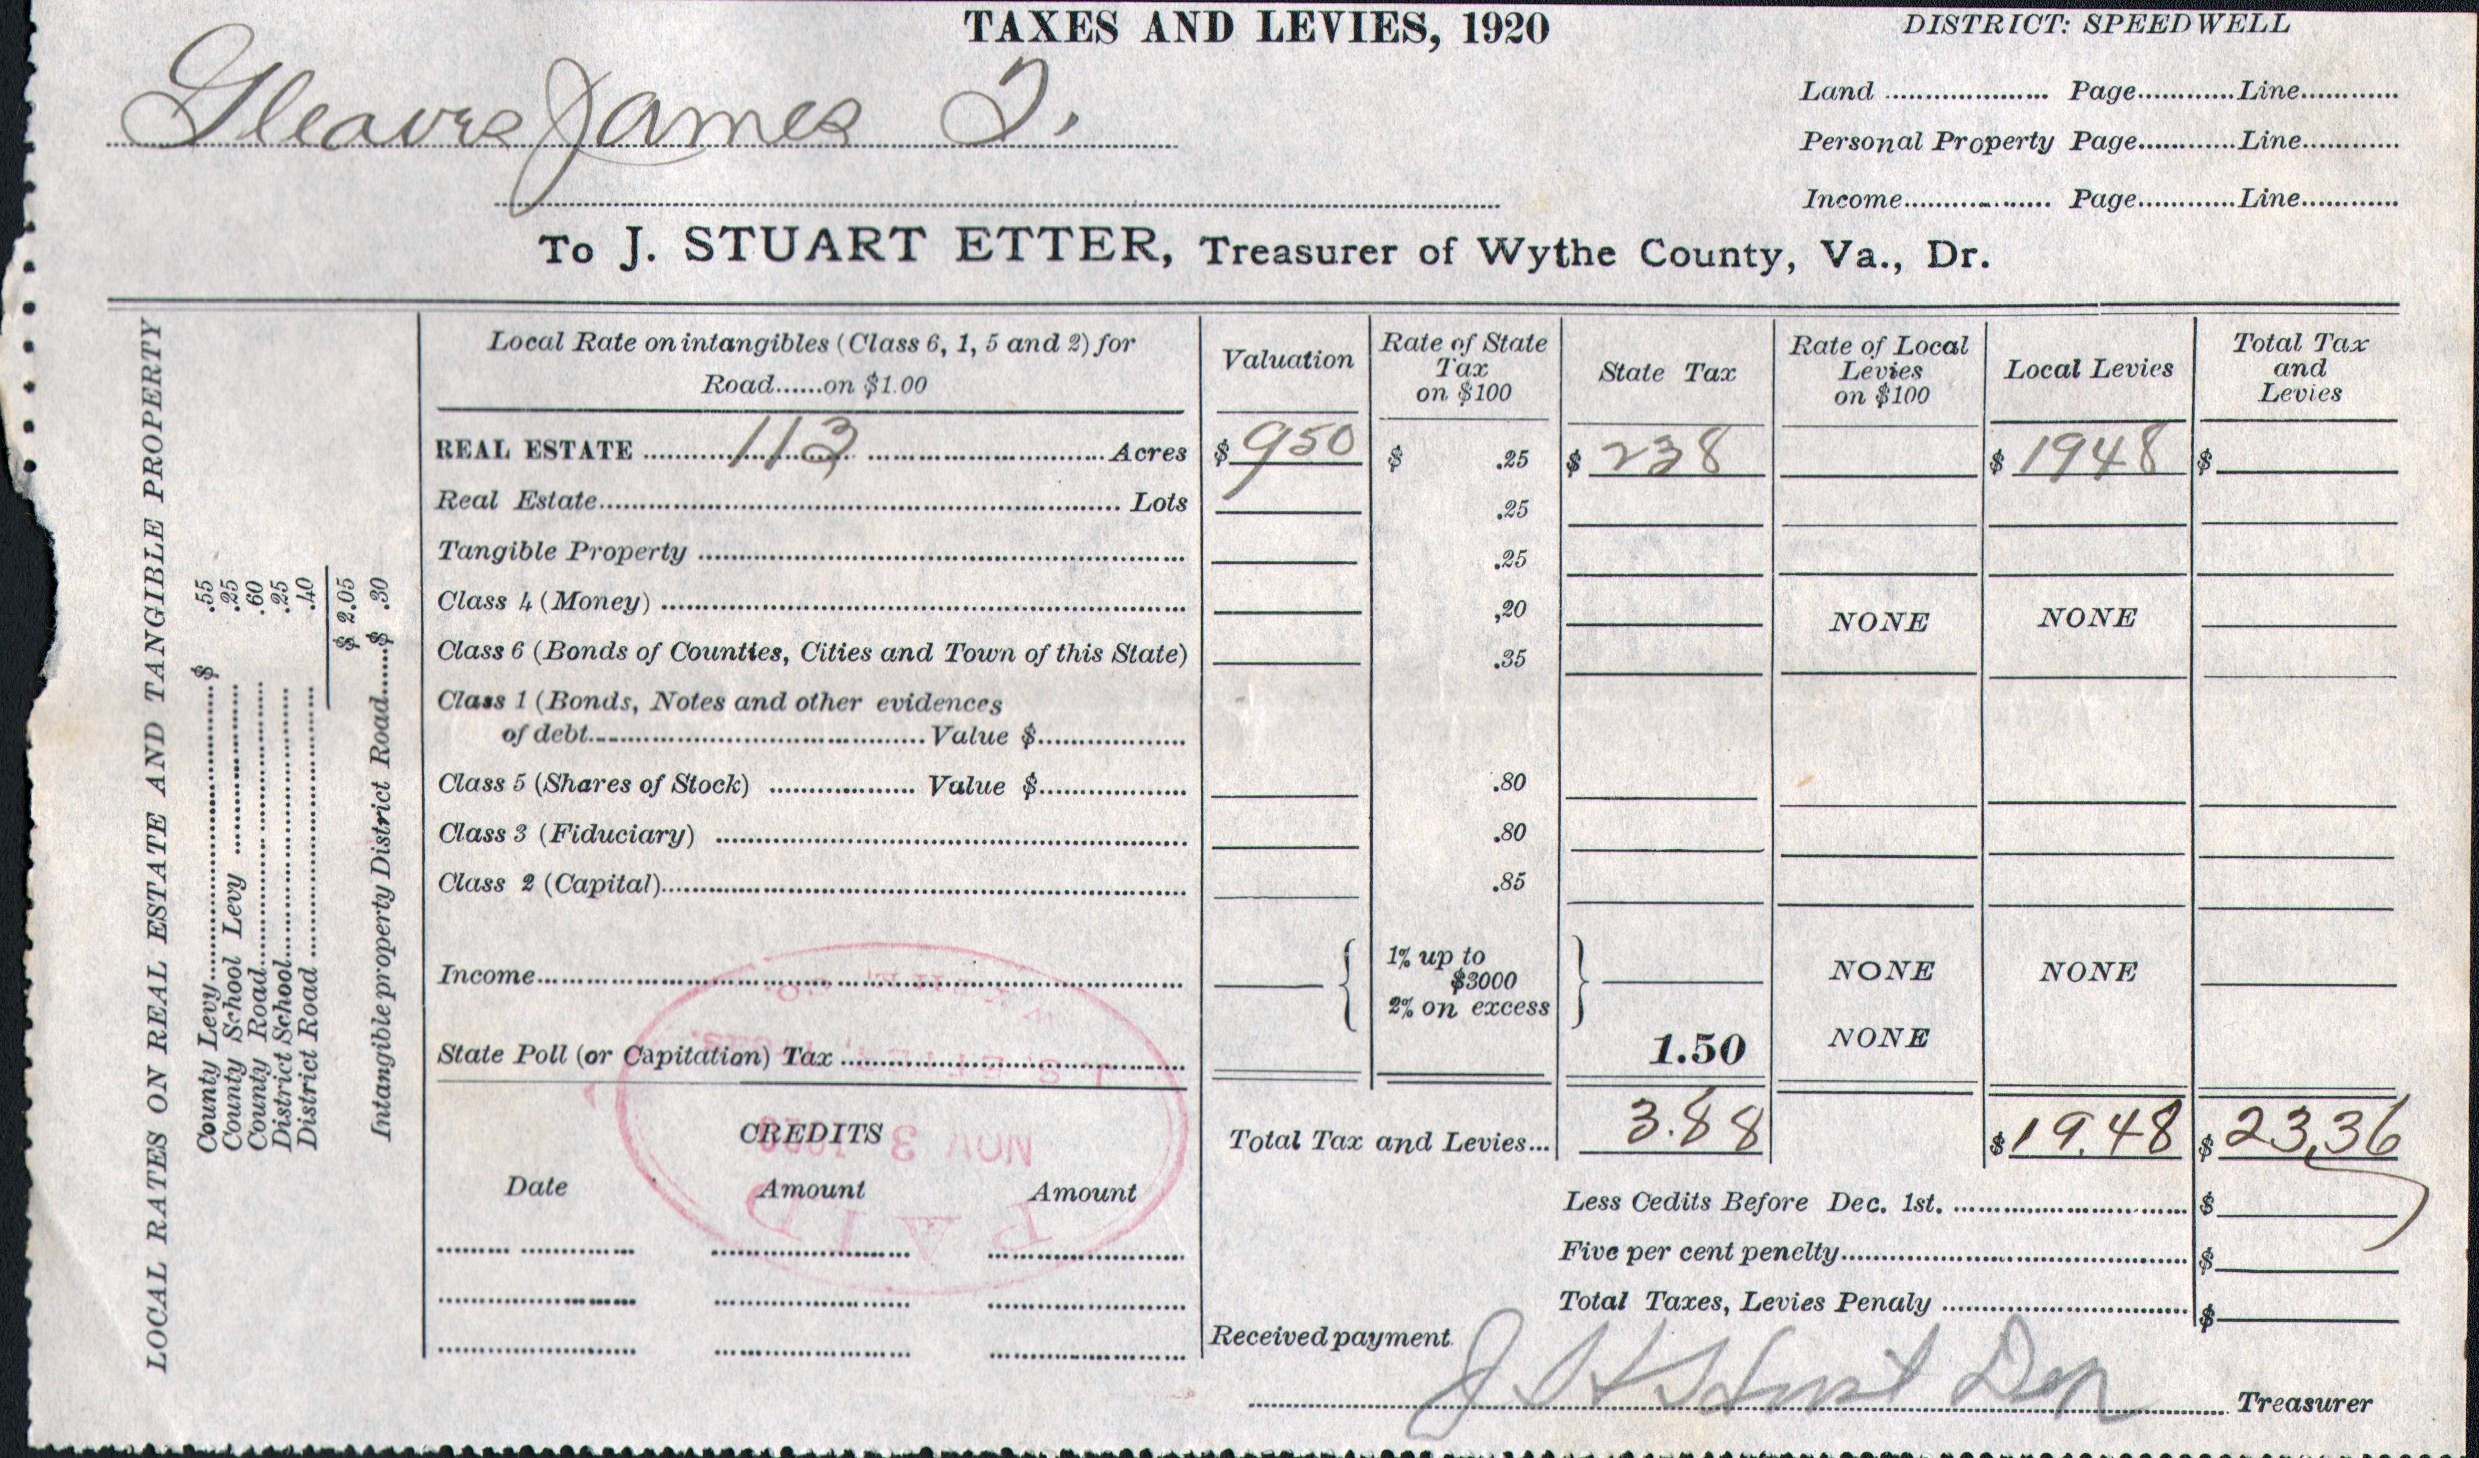 TAXES AND LEVIES, 1920
DISTRICT: SPEEDWELL
Gleaves James T.
Land .................... Page............Line............
Personal Property Page............Line............
Income.................. Page............Line............
To J. STUART ETTER, Treasurer of Wythe County, Va., Dr.
LOCAL RATES ON REAL ESTATE AND TANGIBLE PROPERTY
County Levy........$ .55
County School Levy ........ .25
County Road........ .60
District School........ .25
District Road ........ .40
$ 2.05
Intangible property District Road......$ .30
Local Rate on intangibles (Class 6, 1, 5 and 2) for
Road......on $1.00
Valuation
Rate of State Tax on $100
State Tax
Rate of Local Levies on $100
Local Levies
Total Tax and Levies
REAL ESTATE ........113........ Acres $ 950 $ .25 $ 238 $ 1948 $
Real Estate........ Lots .25
Tangible Property ........ .25
Class 4 (Money) ........ ,20 NONE NONE
Class 6 (Bonds of Counties, Cities and Town of this State) .35
Class 1 (Bonds, Notes and other evidences
of debt........ Value $........
Class 5 (Shares of Stock) ........ Value $........ .80
Class 3 (Fiduciary) ........ .80
Class 2 (Capital)........ .85
Income........ { 1% up to $3000 2% on excess } NONE NONE
State Poll (or Capitation) Tax ........ 1.50 NONE
Total Tax and Levies... 3.88 $ 19.48 $ 23.36
CREDITS
Date Amount Amount
Less Cedits Before Dec. 1st. ........ $
Five per cent penelty........ $
Total Taxes, Levies Penaly ........ $
PAID
NOV 3 1920
Received payment
Treasurer